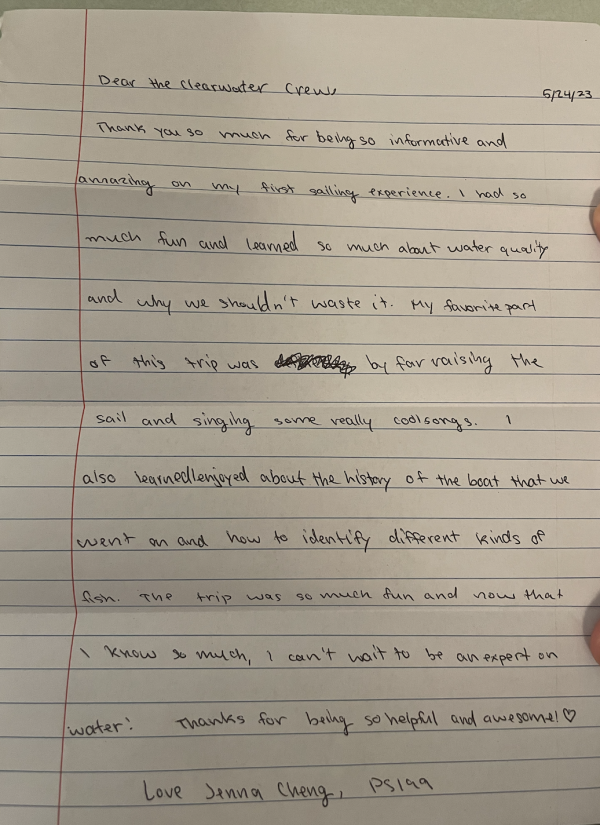 Dear the Clearwater Crew,
5/24/23
Thank you so much for being so informative and
amazing on my first sailing experience. I had so
much fun and learned so much about water quality
and why we shouldn't waste it. My favorite part
of this trip was by far raising the
sail and singing some really cool songs. I
also learned/enjoyed about the history of the boat that we
went on and how to identify different kinds of
fish. The trip was so much fun and now that
I know so much, I can't wait to be an expert on
water! Thanks for being so helpful and awesome! ♡
Love Jenna Cheng, PS199